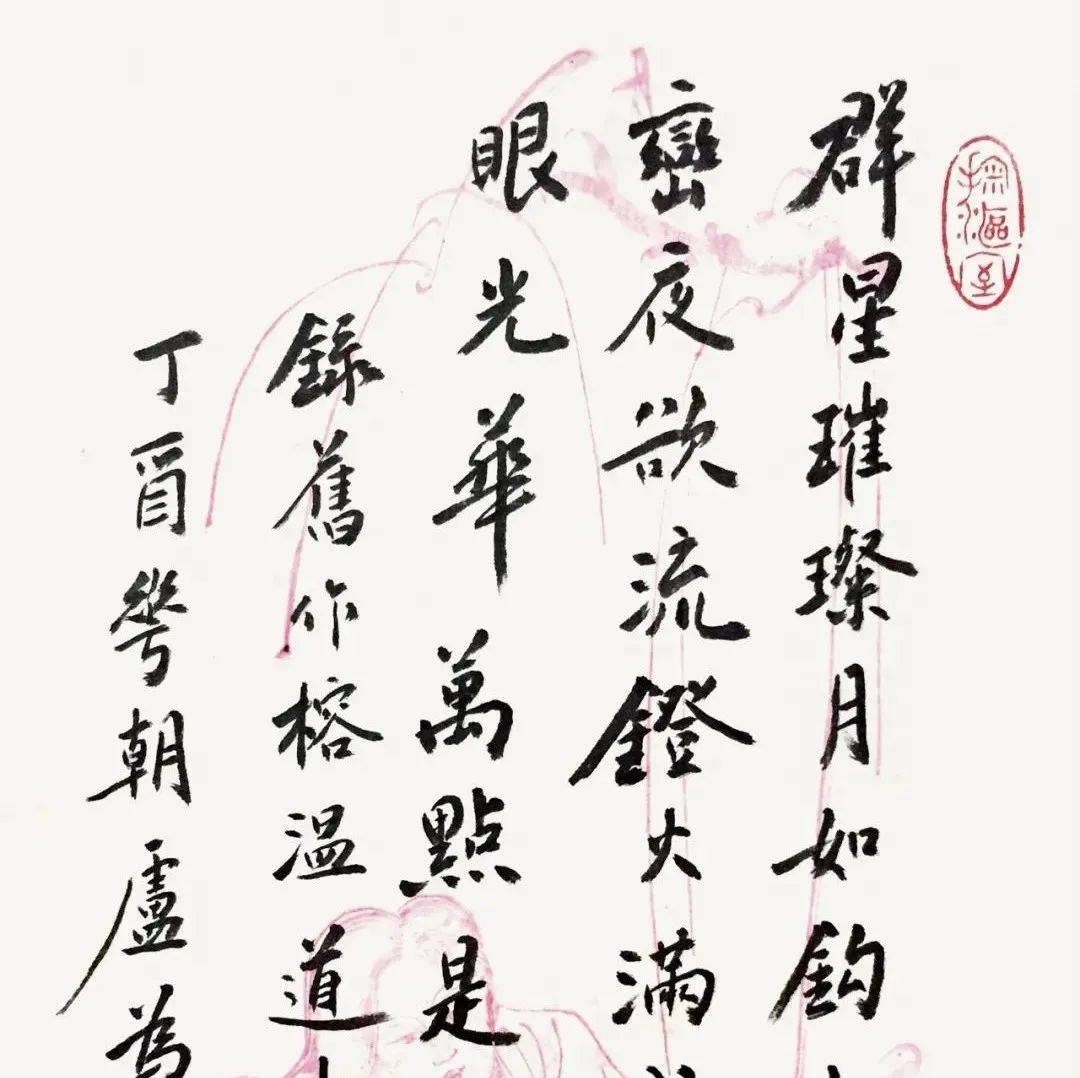 群星璀璨月如鈎
巒夜欲流鐙火滿
眼光華萬點是
錄舊作榕溫道
丁酉華朝盧為